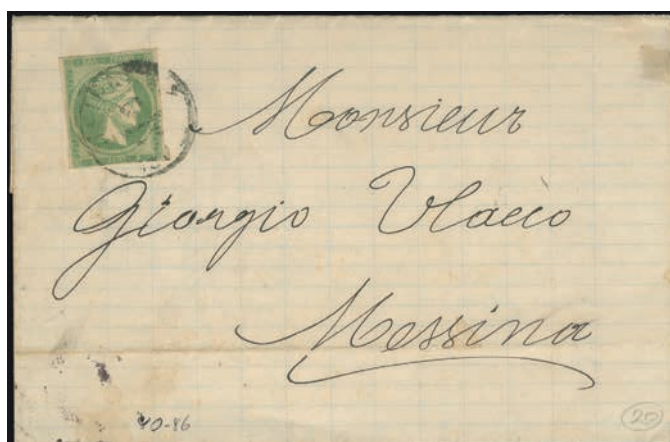 Monsieur
Giorgio Vlacco
Messina
40-86
20